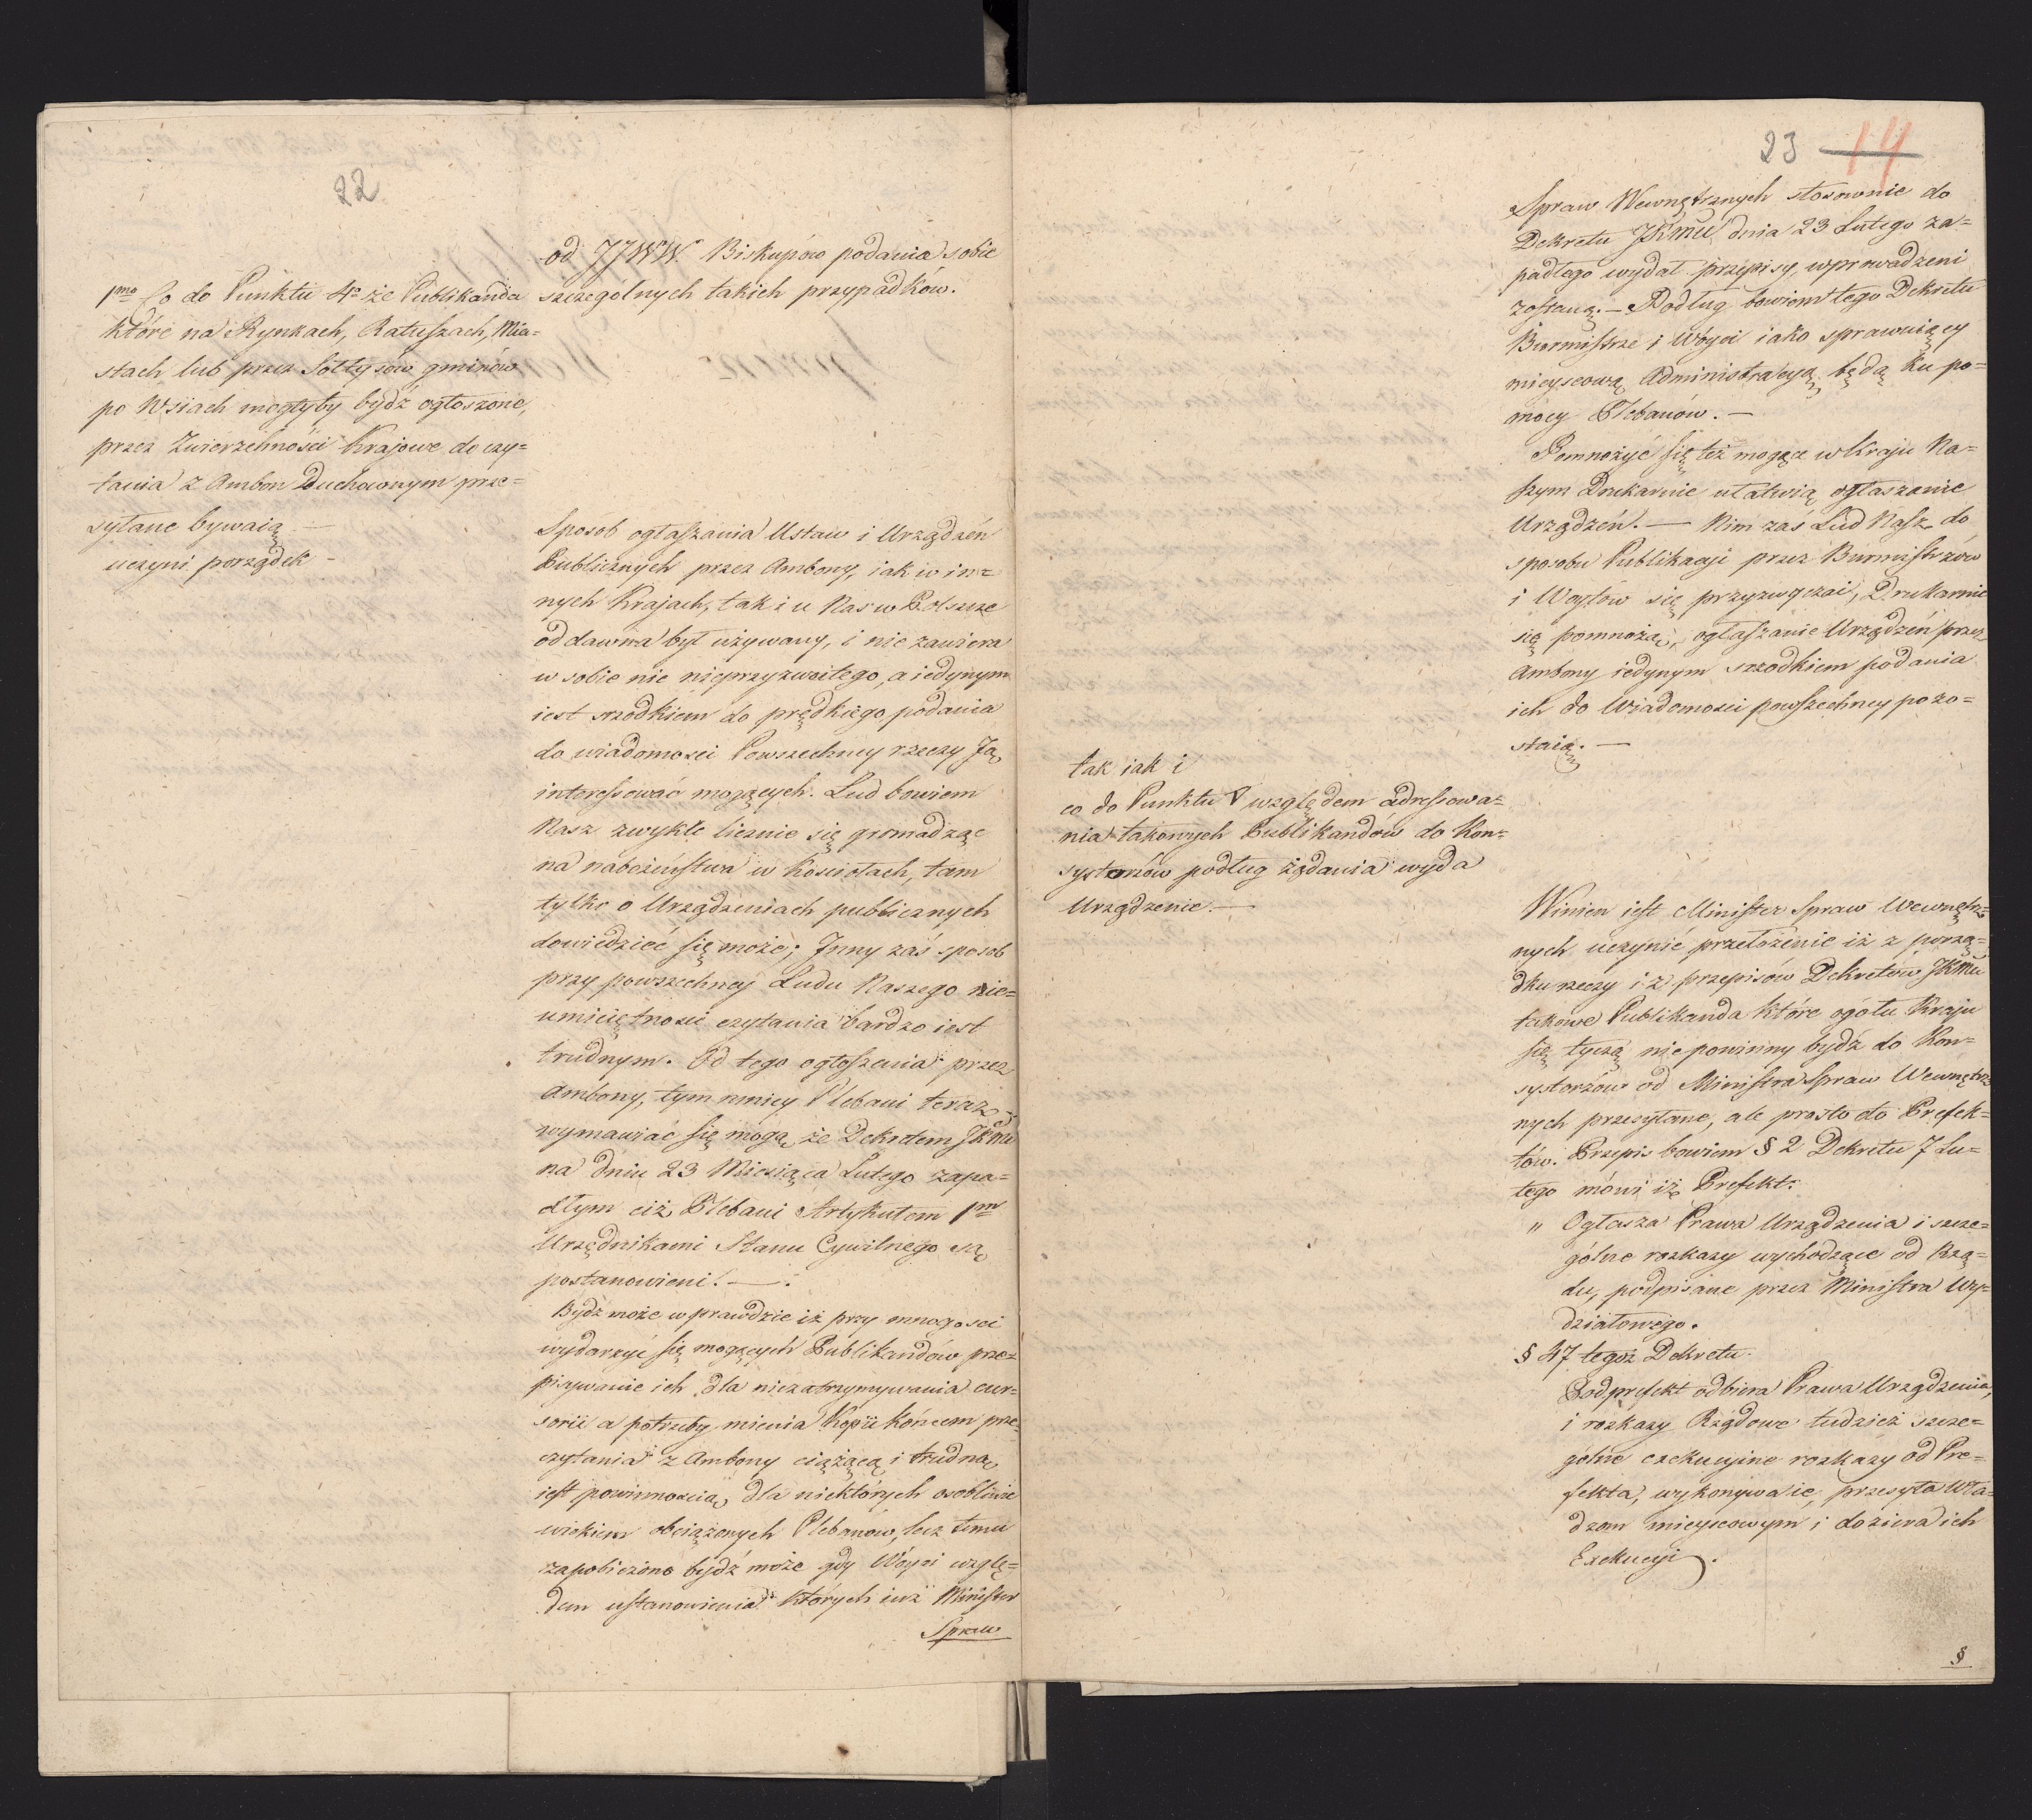 22
1mo Co do Punktu 4o że Publikanda
które na Rynkach, Ratuszach, Mia=
stach lub przez Sołtysów gminów
po Wsiach mogłyby bydź ogłoszone,
przez Zwierzchności Krajowe do czy=
tania z Ambon Duchownym prze=
syłane bywaią —
uczyni porządek —
od JJWW Biskupów podania sobie
szczególnych takich przypadków.
Sposób ogłaszania Ustaw i Urządzeń
Publicznych przez Ambony, iak w in=
nych Krajach, tak i u Nas w Polszcze
od dawna był używany, i nie zawiera
w sobie nic nieprzyzwoitego, a iedynym
iest srzodkiem do prędkiego podania
do wiadomosci Powszechney rzeczy Ją
interessować mogących. Lud bowiem
Nasz zwykle licznie się gromadząc
na nabożeństwa w Kosciołach, tam
tylko o Urządzeniach publicznych
dowiedzieć się może; Jnny zaś sposob
przy powszechney Ludu Naszego nie=
umieiętnosci czytania bardzo iest
trudnym. Od tego ogłoszenia przez
Ambony, tym mniey Plebani teraz
wymawiać się mogą, że Dekretem JKMci
na dniu 23 Miesiąca Lutego zapa=
dłym ciż Plebani Artykułem 1m
Urzędnikami Stanu Cywilnego są
postanowieni. —
Bydź może w prawdzie iż przy mnogosci
wydarzyć się mogących Publikandów prze=
pisywanie ich dla niezatrzymywania cur=
sorii a potrzeby mienia Kopii końcem prze=
czytania z Ambony ciążącą i trudną
iest powinnoscią, dla niektórych osobliwie
wiekiem obciążonych Plebanów, lecz temu
zapobieżono bydź może gdy Wóyci wzglę=
dem ustanowienia których iuż Minister
Spraw
23 14
Spraw Wewnętrznych stosownie do
Dekretu JKMci dnia 23 Lutego za=
padłego wydał przepisy, wprowadzeni
zostaną. — Podług bowiem tego Dekretu
Burmistrze i Wóyci iako sprawuiący
mieyscową Administracyą, będą ku po=
mocy Plebanów. —
Pomnożyć się też mogące w Kraju Na=
szym Drukarnie ułatwią ogłaszanie
Urządzeń. — Nim zaś Lud Nasz do
sposobu Publikacyi przez Burmistrzów
i Woytów się przyzwyczai, Drukarnie
się pomnożą, ogłaszanie Urządzeń przez
Ambony iedynym srzodkiem podania
ich do Wiadomosci powszechney pozo=
staią. —
tak iak i
co do Punktu V względem adressowa=
nia takowych Publikandów do Kon=
systorzów podług żądania wyda
Urządzenie. —
Winien iest Minister Spraw Wewnętrz=
nych uczynić przełożenie iż z porzą=
dku rzeczy i z przepisów Dekretów JKMci
takowe Publikanda które ogółu Kraju
się tyczą nie powinny bydź do Kon=
systorzów od Ministra Spraw Wewnętrz
nych przesyłane, ale prosto do Prefek=
tów. Przepis bowiem § 2 Dekretu 7 Lu=
tego mówi iż Prefekt:
" Ogłasza Prawa Urządzenia i szcze=
gólne rozkazy wychodzące od Rzą=
du, podpisane przez Ministra Wy=
działowego.
§ 47 tegoż Dekretu.
Podprefekt odbiera Prawa Urządzenia,
i rozkazy Rządowe tudzież szcze=
gólne exekucyine rozkazy od Pre=
fekta, wykonywa ie, przesyła Wła=
dzom mieyscowym i doziera ich
Exekucyi.
§